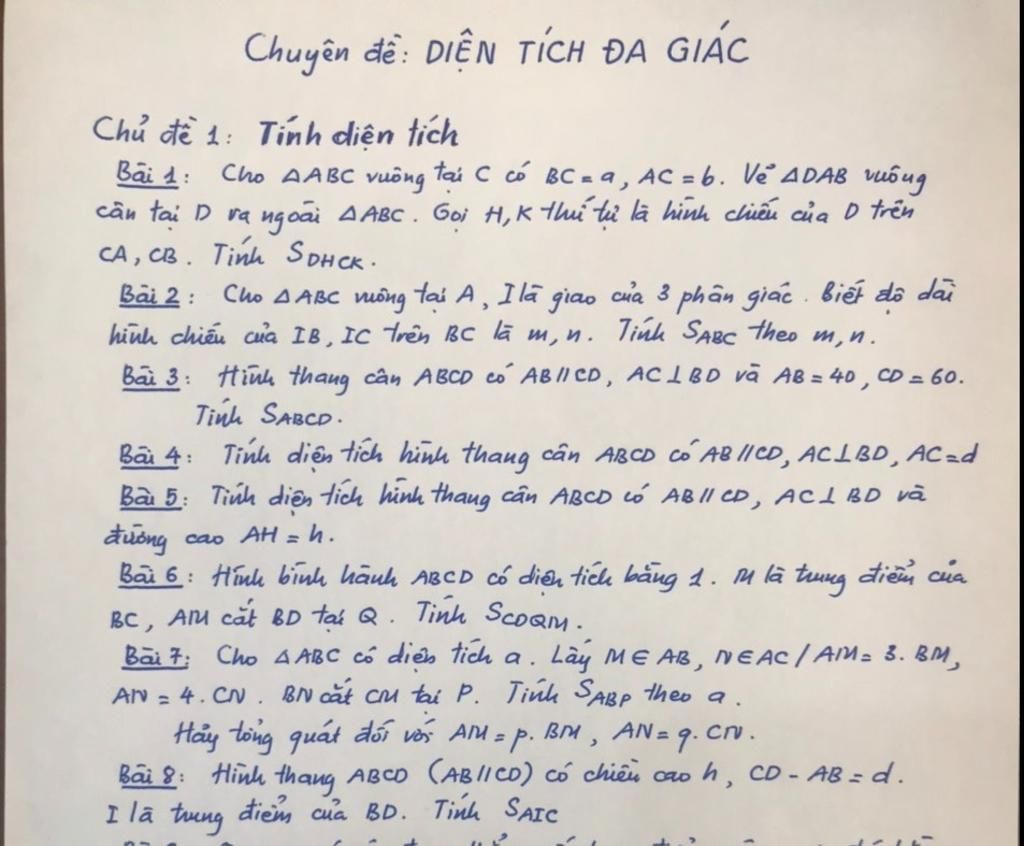 Chuyên đề: DIỆN TÍCH ĐA GIÁC
Chủ đề 1: Tính diện tích
Bài 1: Cho △ABC vuông tại C có BC = a, AC = b. Vẽ △DAB vuông
cân tại D ra ngoài △ABC. Gọi H, K thứ tự là hình chiếu của D trên
CA, CB. Tính SDHCK.
Bài 2: Cho △ABC vuông tại A, I là giao của 3 phân giác. Biết độ dài
hình chiếu của IB, IC trên BC là m, n. Tính SABC theo m, n.
Bài 3: Hình thang cân ABCD có AB // CD, AC ⊥ BD và AB = 40, CD = 60.
Tính SABCD.
Bài 4: Tính diện tích hình thang cân ABCD có AB // CD, AC ⊥ BD, AC = d
Bài 5: Tính diện tích hình thang cân ABCD có AB // CD, AC ⊥ BD và
đường cao AH = h.
Bài 6: Hình bình hành ABCD có diện tích bằng 1. M là trung điểm của
BC, AM cắt BD tại Q. Tính SCDQM.
Bài 7: Cho △ABC có diện tích a. Lấy M ∈ AB, N ∈ AC / AM = 3. BM,
AN = 4. CN. BN cắt CM tại P. Tính SABP theo a.
Hãy tổng quát đối với AM = p. BM, AN = q. CN.
Bài 8: Hình thang ABCD (AB // CD) có chiều cao h, CD - AB = d.
I là trung điểm của BD. Tính SAIC